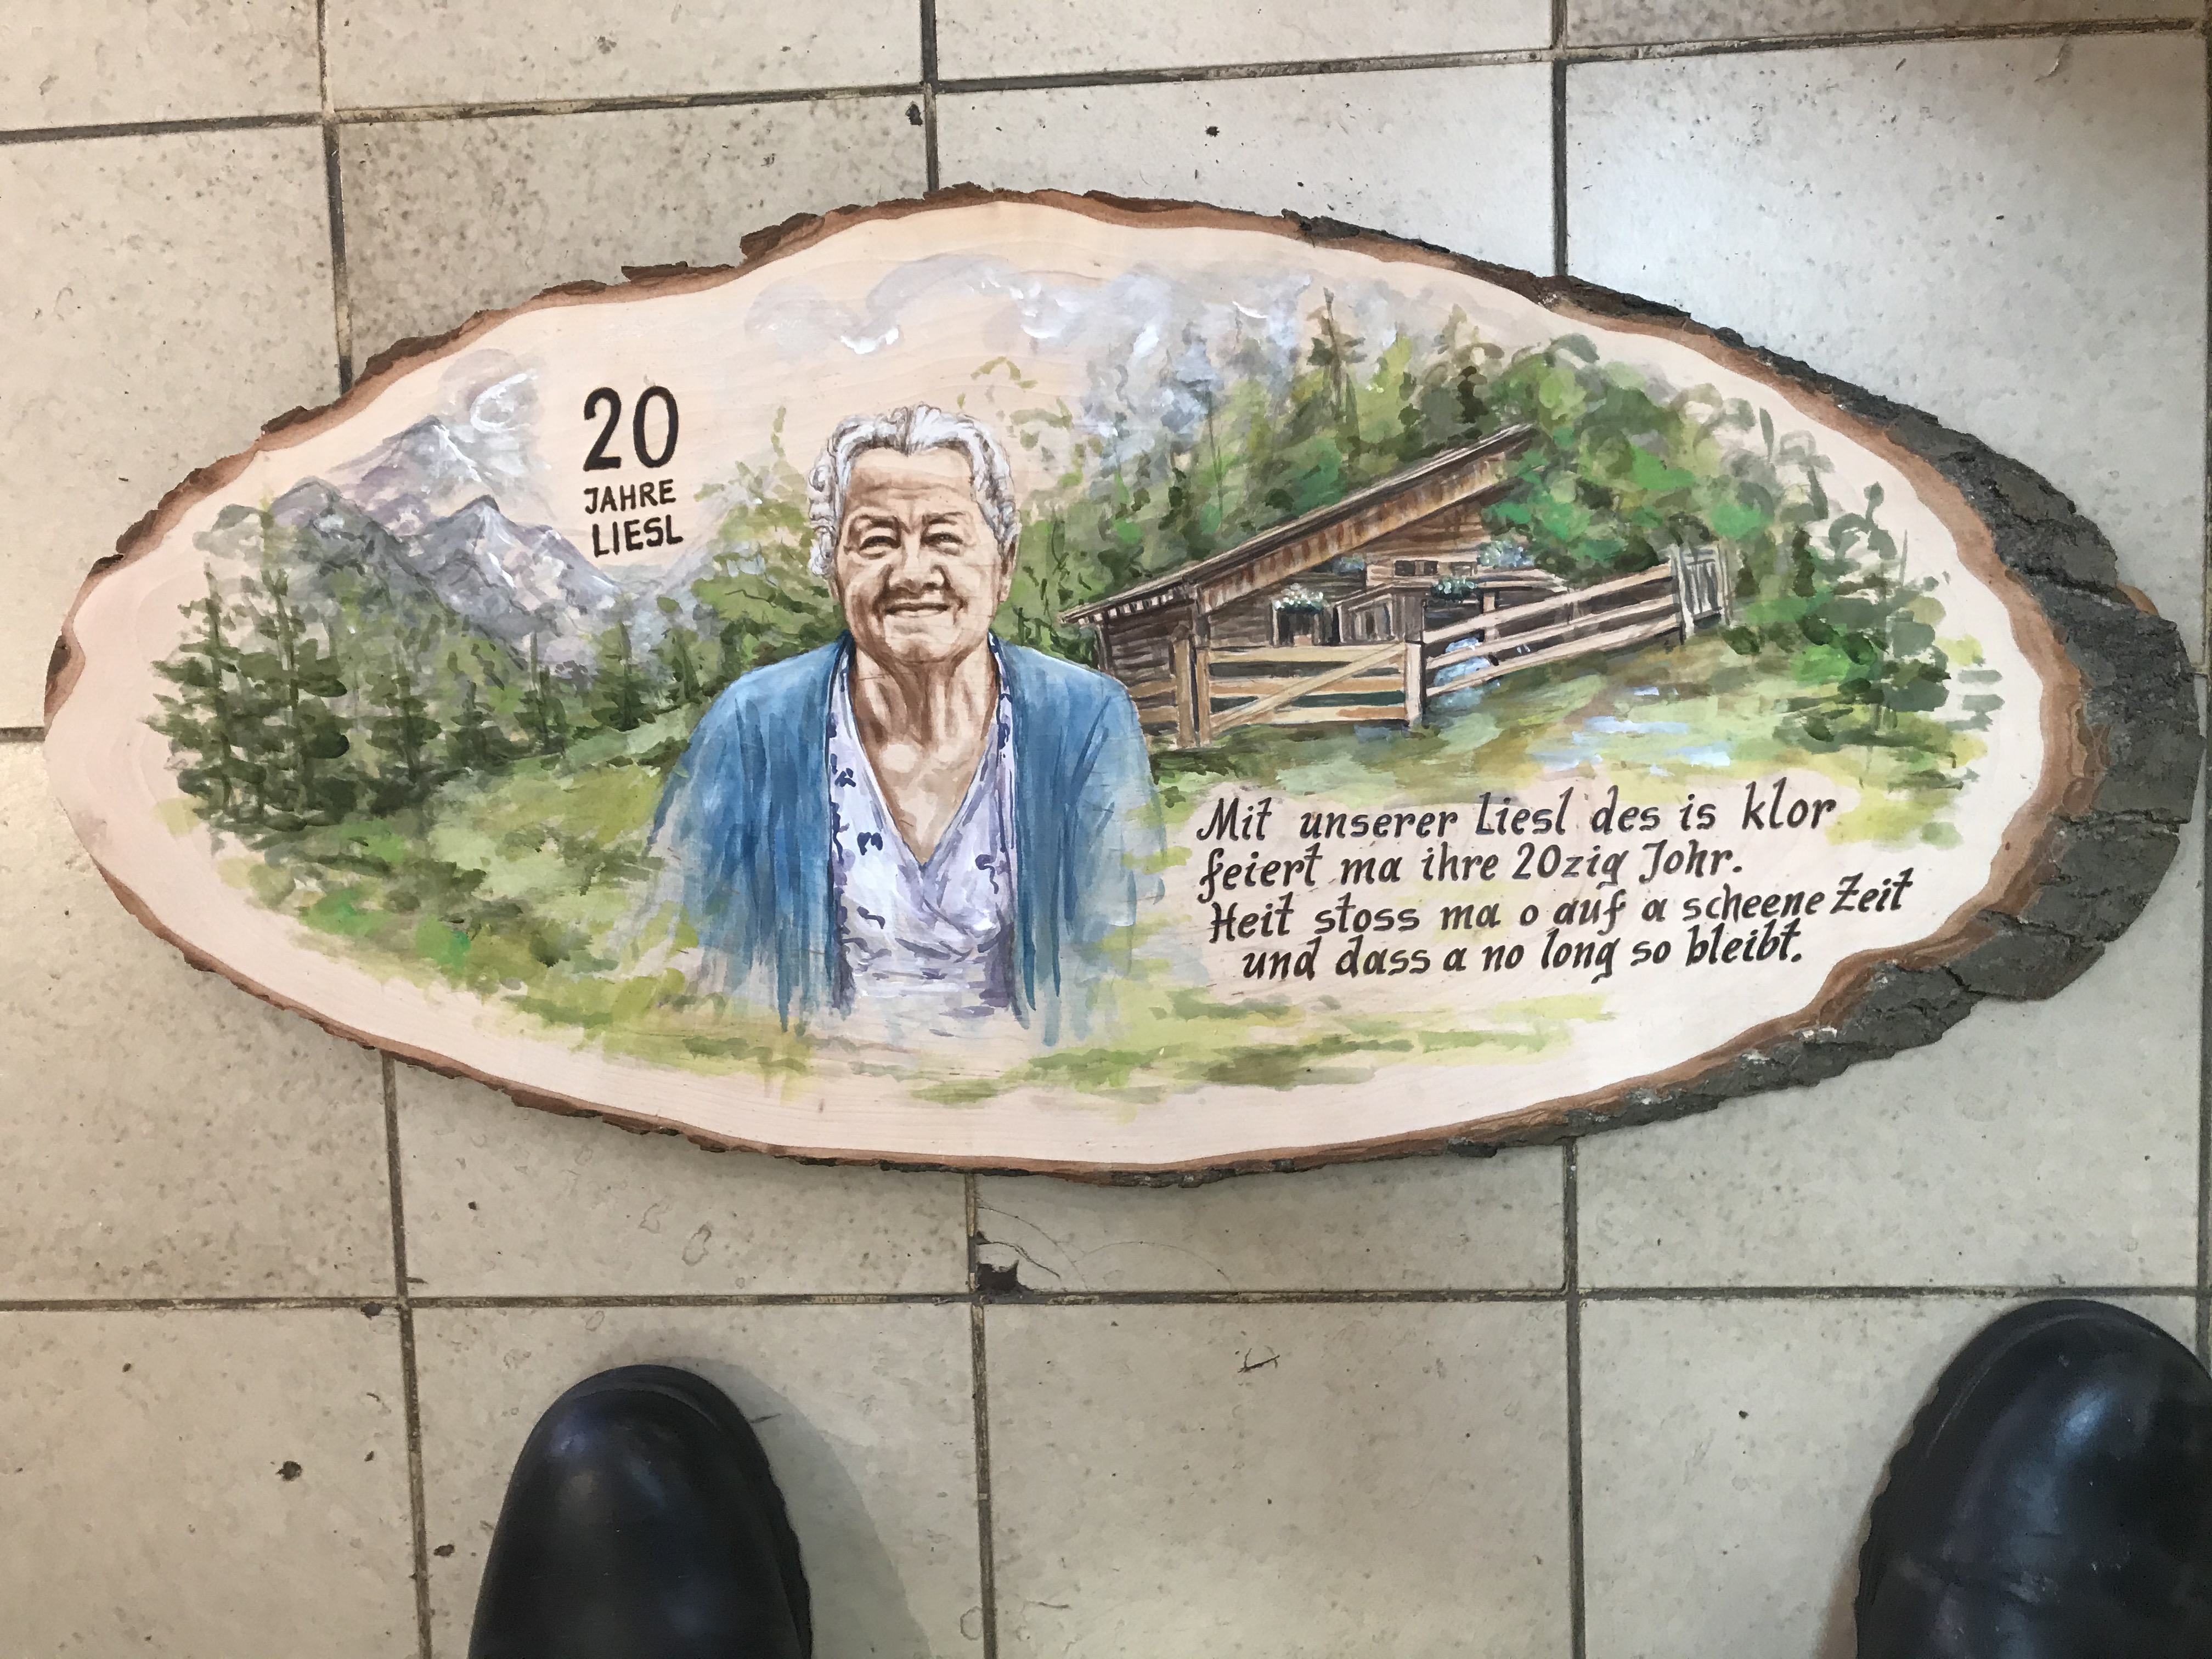 20
JAHRE
LIESL
Mit unserer Liesl des is klor
feiert ma ihre 20zig Johr.
Heit stoss ma o auf a scheene Zeit
und dass a no long so bleibt.